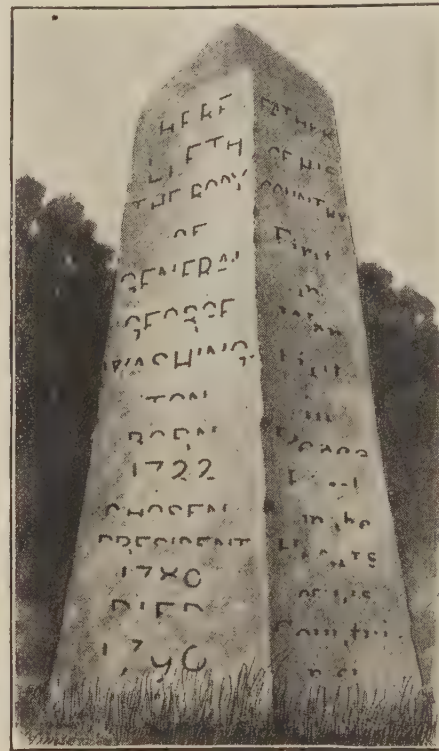 HERE
LIETH
THE BODY
OF
GENERAL
GEORGE
WASHING
TON
BORN
CHOSEN
PRESIDENT
DIED
FATHER
OF HIS
COUNTRY
First
in
First
in
Peace
in the
Hearts
of his
Country